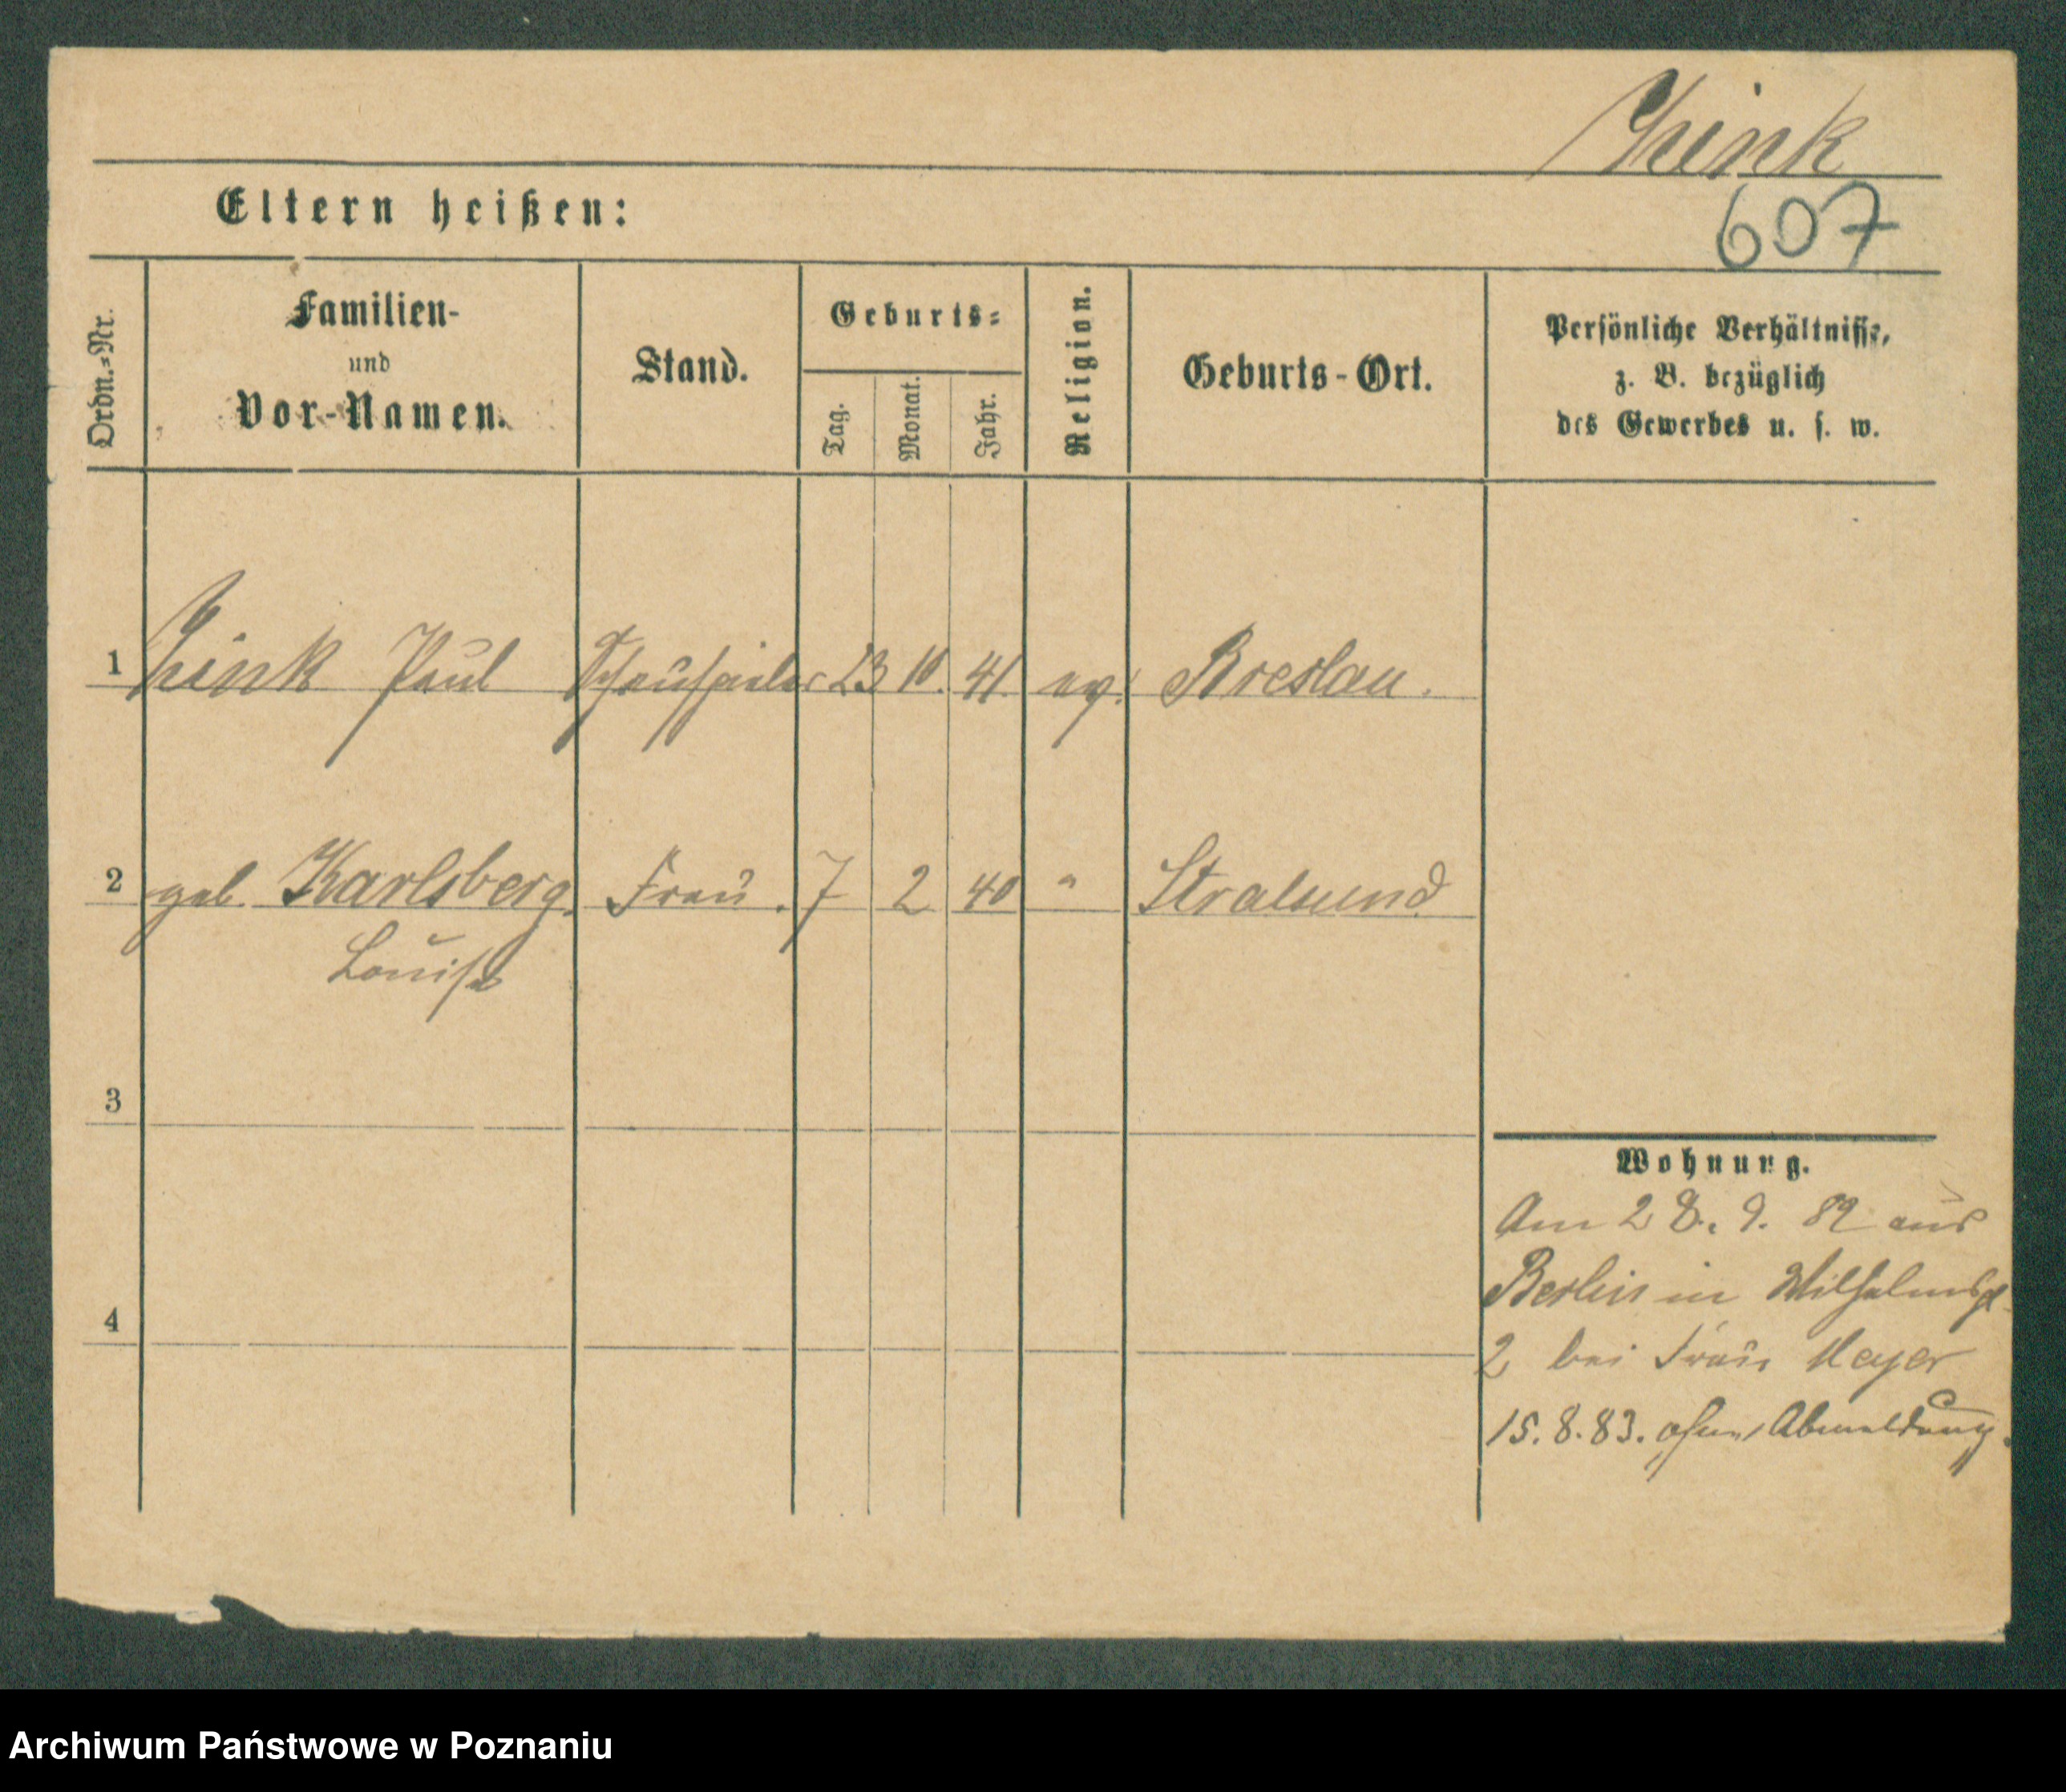 Zink
607
Eltern heißen:
Ordn.=Nr.
Familien-
und
Vor-Namen.
Stand.
Geburts=
Tag.
Monat.
Jahr.
Religion.
Geburts-Ort.
Persönliche Verhältnisse,
z. B. bezüglich
des Gewerbes u. s. w.
1 Zink Paul Schauspieler 23 10. 41. ev. Breslau.
2 geb. Karlsberg. Frau. 7 2 40 " Stralsund
Louise
3
4
Wohnung.
Am 28. 9. 82 aus
Berlin in Wilhelmspl.
2 bei Frau Meyer
15. 8. 83. ohne Abmeldung.
Archiwum Państwowe w Poznaniu